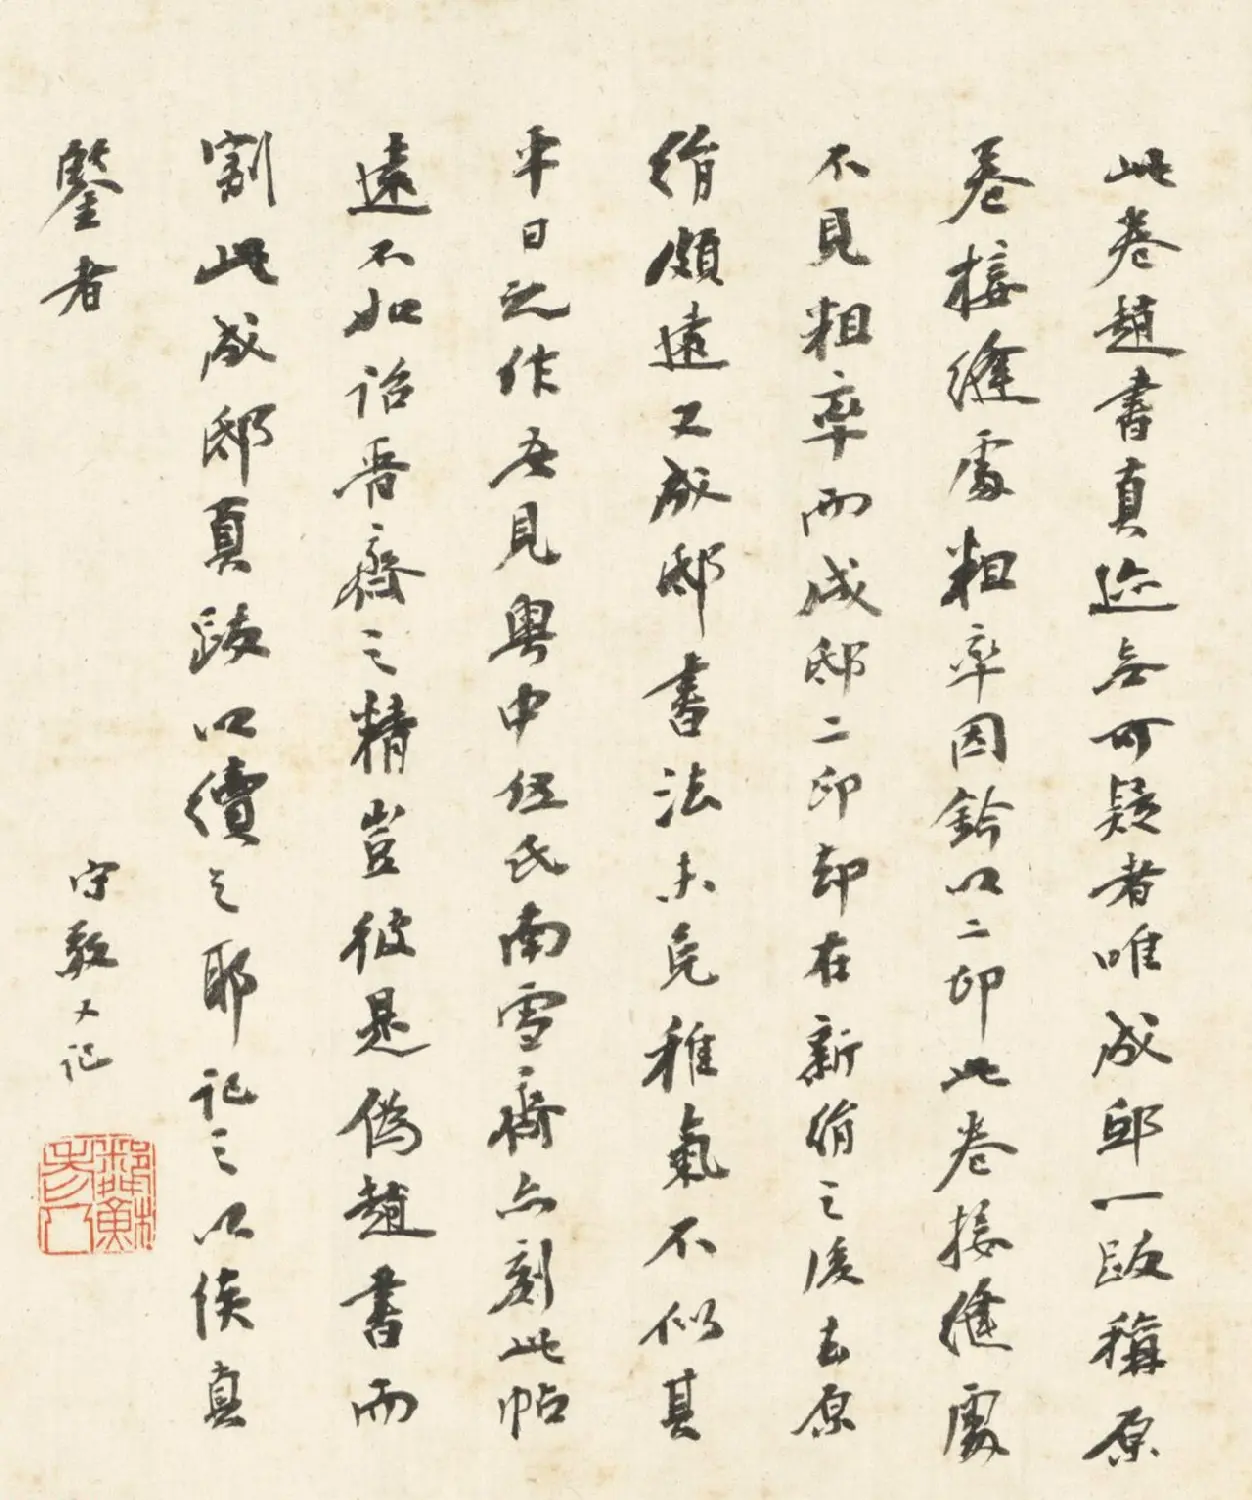 此卷趙書真迹無可疑者唯成邸一跋稱原
卷接縫處粗率因鈐以二印此卷接縫處
不見粗率而成邸二印却在新絹之後去原
絹頗遠又成邸書法未免稚氣不似其
平日之作吾見粵中伍氏南雪齋亦刻此帖
遠不如詒晉齋之精豈彼是偽趙書而
割此成邸真跋以續之耶記之以俟真
鑒者
守敬又記